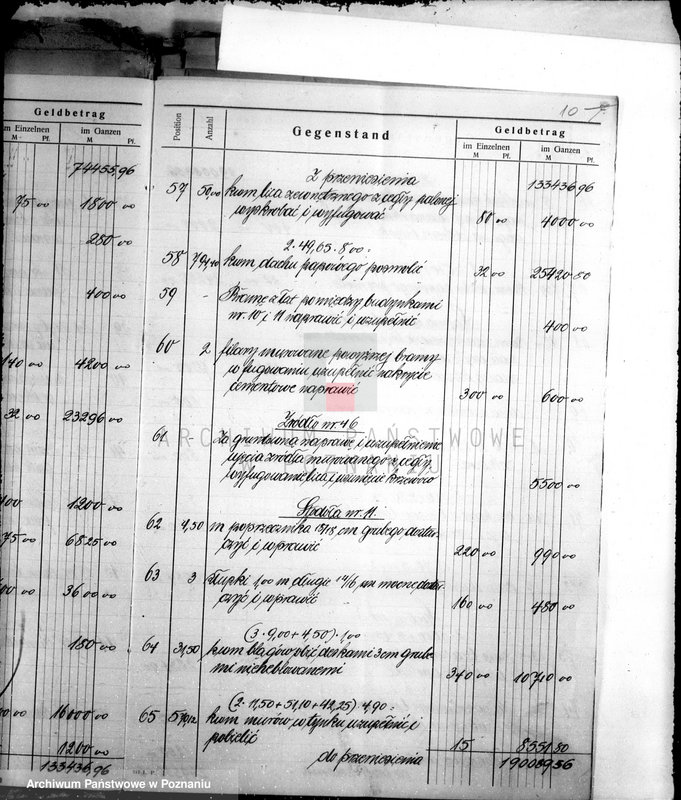 Geldbetrag
im Einzelnen im Ganzen
M Pf. M Pf.
74455,96
75 00 1800 00
280 00
400 00
140 00 4200 00
32 00 23296 00
1200 00
75 00 6825 00
3600 00
180 00
16000 00
1200 00
133436,96
10
Position Anzahl Gegenstand Geldbetrag
im Einzelnen im Ganzen
M Pf. M Pf.
Z przeniesienia 133436 96
57 50,00 kw.m lica zewnętrznego z cegły palonej
wyskrobać i wyfugować 80 00 4000 00
2 · 49,65 · 8 00 =
58 794,40 kw.m dachu papowego posmolić 32 00 25420 80
59 - Bramę z łat pomiędzy budynkami
nr. 10 i 11 naprawić i uzupełnić 400 00
60 2 filary murowane powyższej bramy
w fugowaniu uzupełnić nakrycie
cementowe naprawić 300 00 600 00
Źródło nr 46
61 - Za gruntowną naprawę i uzupełnienie
ujęcia źródła murowanego z cegły
wyfugowanie lica i usunięcie krzewów 5500 00
Stodoła nr. 11.
62 4,50 m poprzecznika 15/18 cm grubego, dostar-
czyć i wprawić 220 00 990 00
63 3 słupki 1,00 m długie 14/16 cm mocne, dostar-
czyć i wprawić 160 00 480 00
(3 · 9,00 + 4,50) · 1 00
64 31,50 kw.m blagów obić deskami 3 cm grube-
mi nieheblowanemi 340 00 10710 00
(2 · 11,50 + 51,10 + 42,25) 4,90 =
65 570,12 kw.m murów w tynku uzupełnić i
pobielić 15 8551 80
do przeniesienia 190089 56
ARCHIWUM PAŃSTWOWE
W POZNANIU
Archiwum Państwowe w Poznaniu